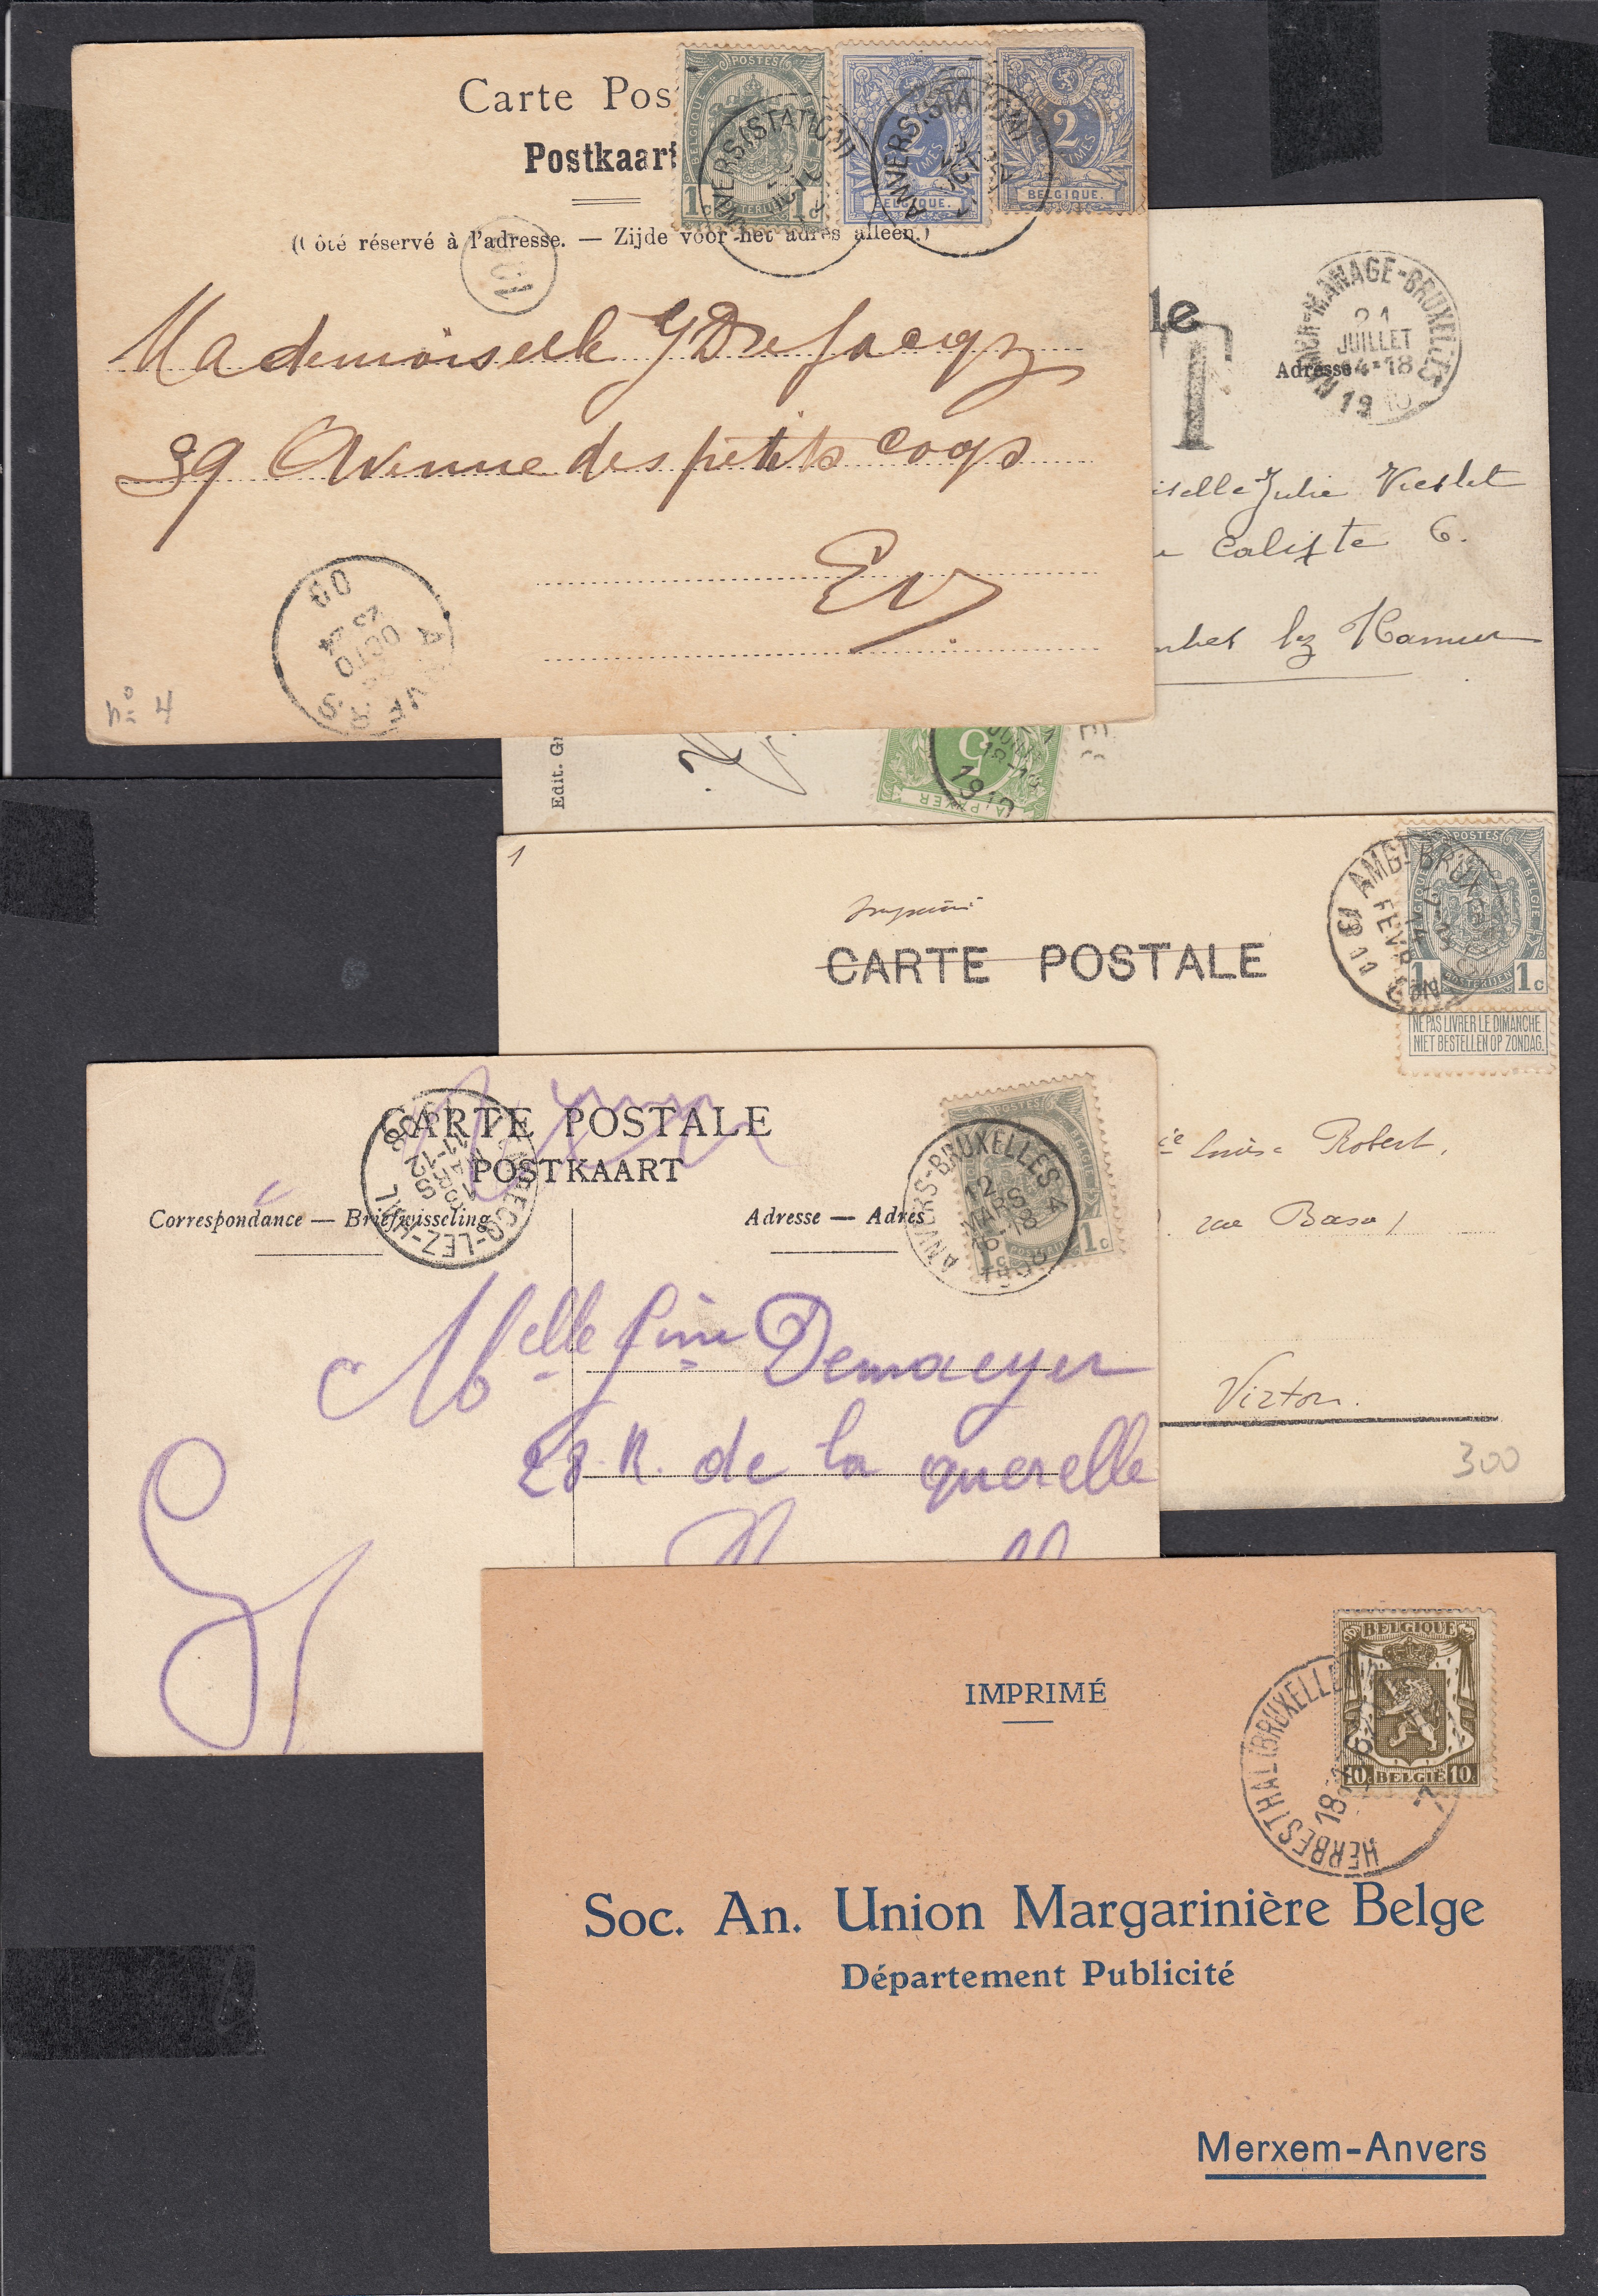 Carte Pos
Postkaart
(Côté réservé à l'adresse. — Zijde voor het adres alleen.)
POSTES
BELGIQUE
1c 1c
2
BELGIQUE.
2
BELGIQUE.
ANVERS (STATION)
ANVERS (STATION)
Mademoiselle
39 Avenue des petits Coqs
E.V.
ANVERS
OCTO
00
n° 4
le
T
MANAGE-BRUXELLES
21
JUILLET
14-18
1910
Adresse
iselle Julie Vieslet
Calixte 6.
lez Namur
Edit. G
5
A PAYER
1910
1
Imprimé
CARTE POSTALE
POSTES
1c 1c
POSTERIJEN
NE PAS LIVRER LE DIMANCHE
NIET BESTELLEN OP ZONDAG.
AMBt BRUX
FEVR
Louise Robert,
rue Basse
Virton.
300
CARTE POSTALE
POSTKAART
Correspondance — Briefwisseling
Adresse — Adres
LEZ-HAL
12
1908
POSTES
1c 1c
ANVERS-BRUXELLES 4
12
MARS
16-18
1908
Melle Demaeyer
28 R. de la querelle
IMPRIMÉ
BELGIQUE
10c BELGIË 10c
HERBESTHAL (BRUXELLES
18
Soc. An. Union Margarinière Belge
Département Publicité
Merxem-Anvers